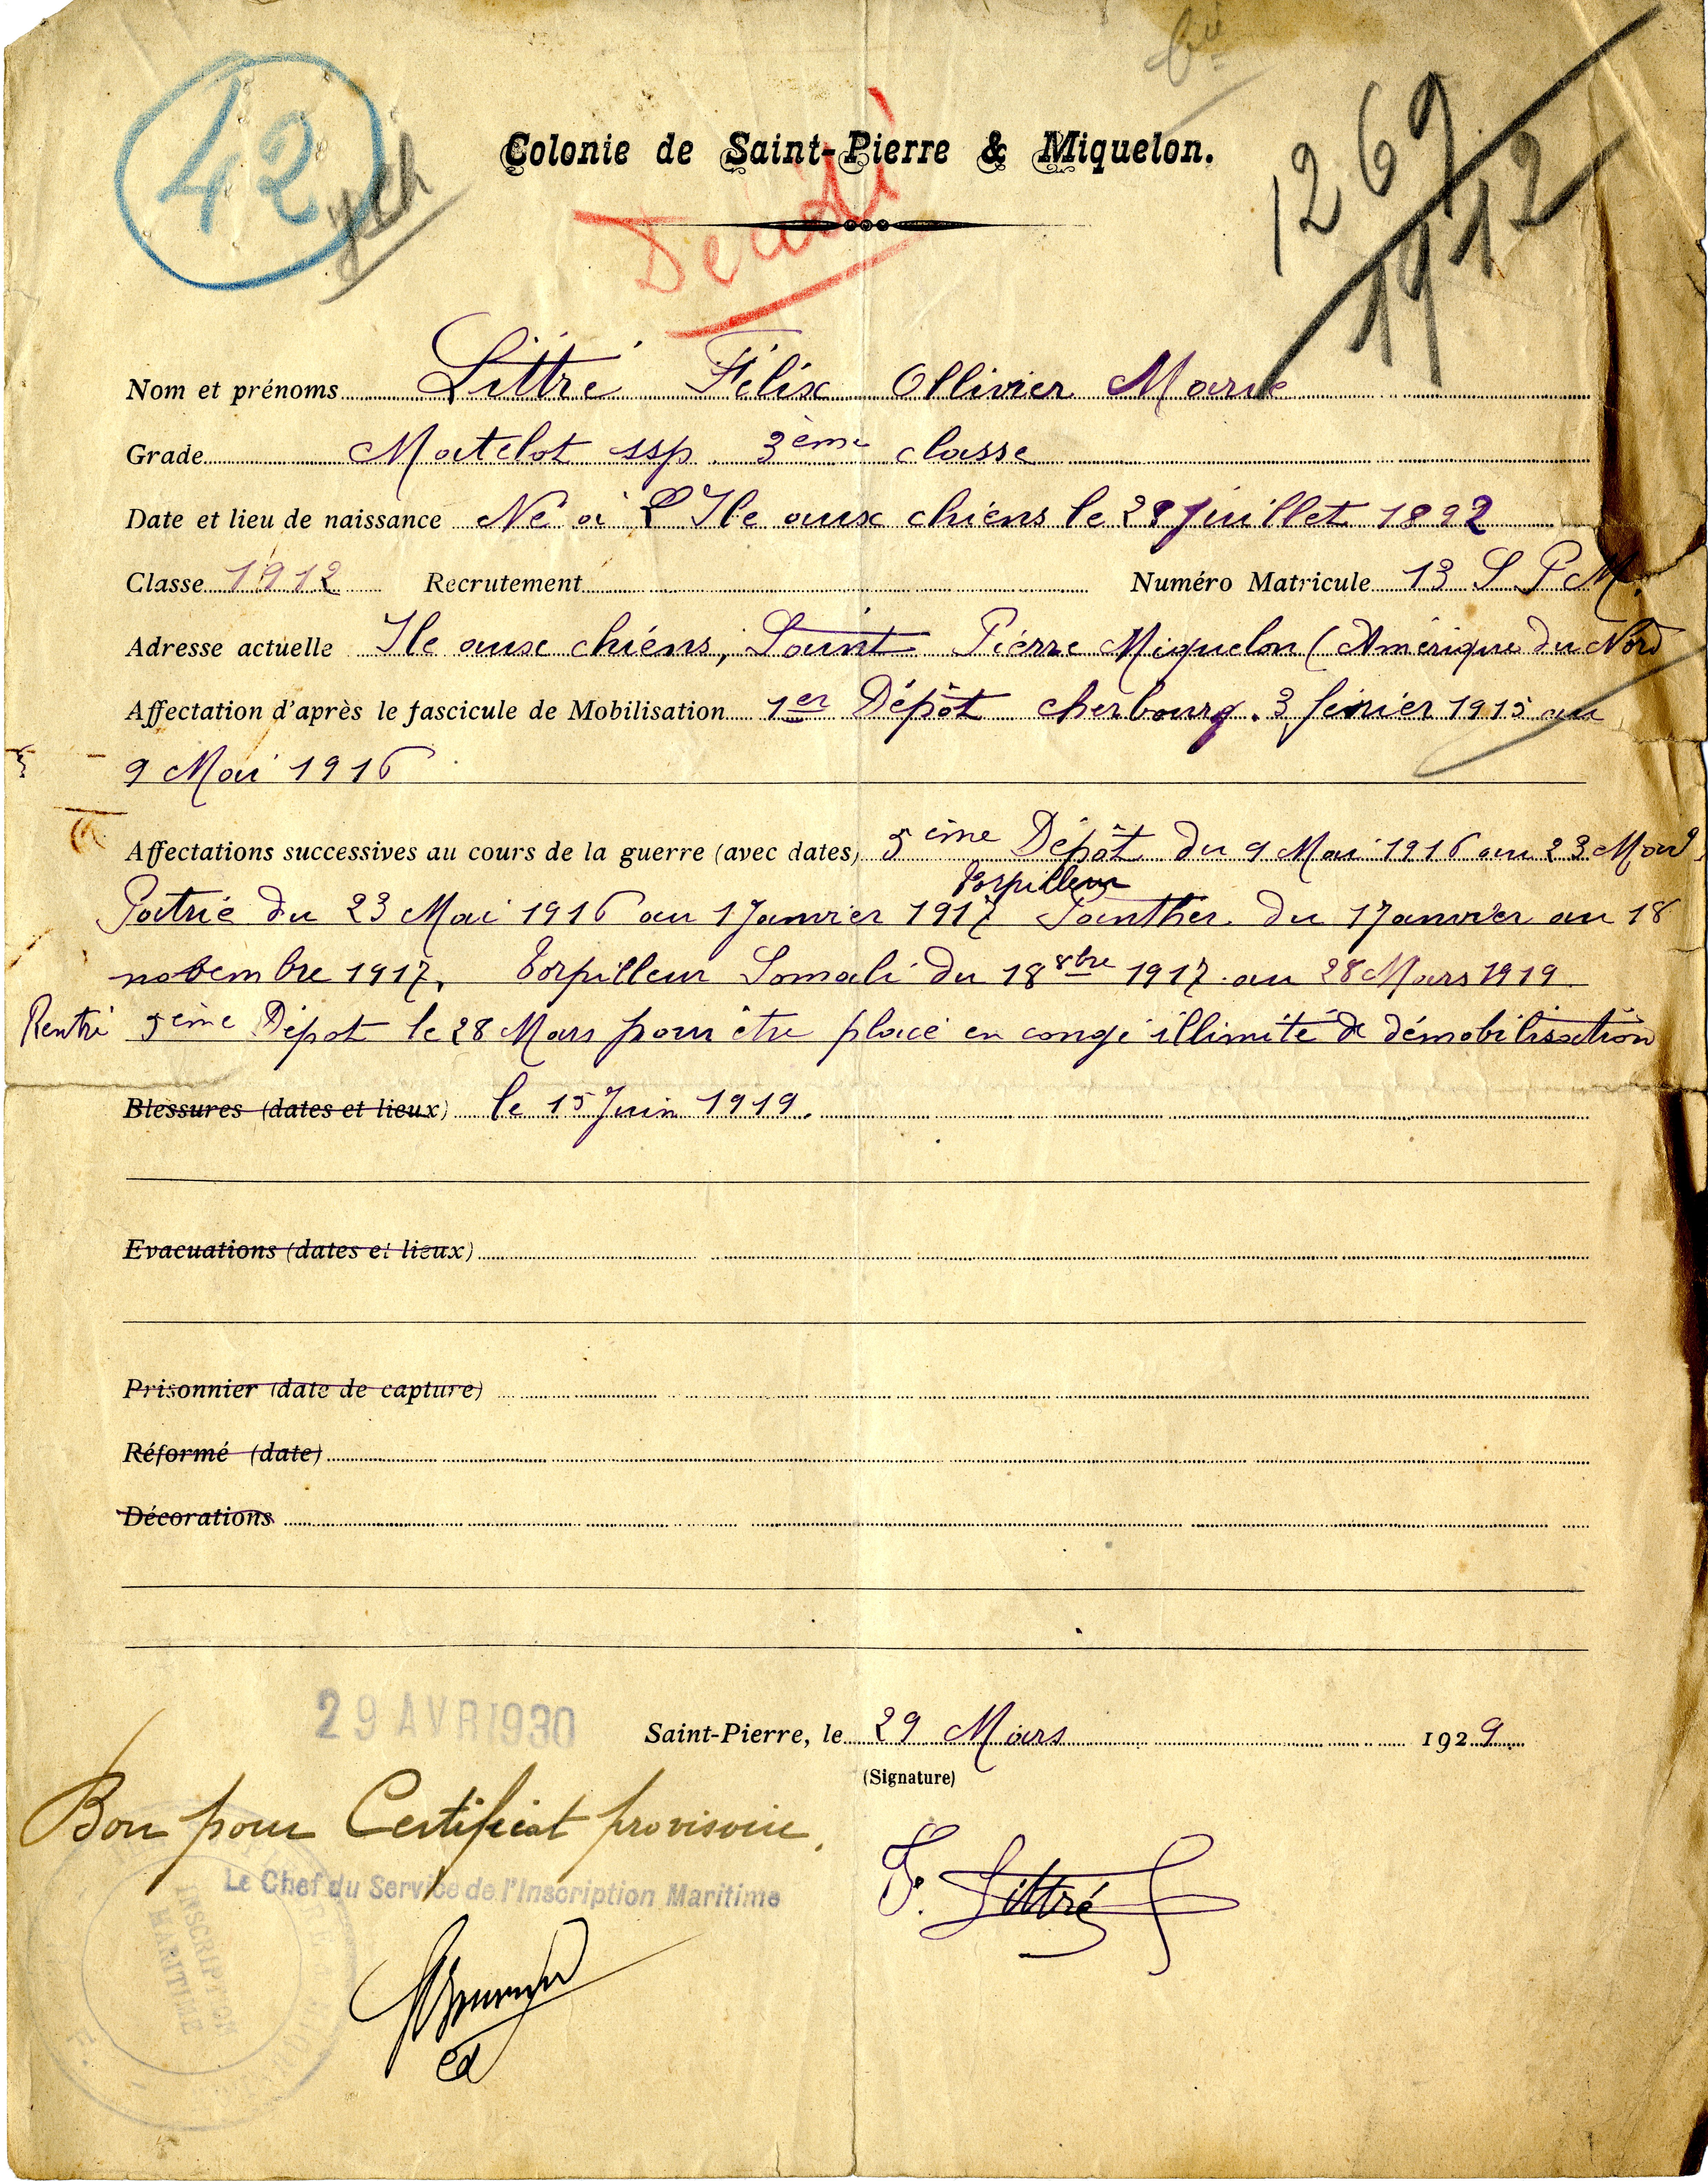 42
Colonie de Saint-Pierre & Miquelon.
1269
1912
Nom et prénoms Littré Félix Ollivier Marie
Grade Matelot ssp. 3ème classe
Date et lieu de naissance Né à L'Ile aux chiens le 28 Juillet 1892
Classe 1912 Recrutement Numéro Matricule 13 S P M.
Adresse actuelle Ile aux chiens, Saint Pierre Miquelon (Amérique du Nord
Affectation d'après le fascicule de Mobilisation 1er Dépôt cherbourg. 3 févriér 1915 au
9 Mai 1916
Affectations successives au cours de la guerre (avec dates) 5ème Dépôt du 9 Mai 1916 au 23 Mai
Torpilleur
Patrie du 23 Mai 1916 au 1 Janvier 1917 Janther du 1 Janvier au 18
novembre 1917, Torpilleur Somali du 18 8bre 1917 au 28 Mars 1919
Rentré 5ème Dépot le 28 Mars pour être placé en congé illimité de démobilisation
Blessures (dates et lieux) le 15 Juin 1919.
Evacuations (dates et lieux)
Prisonnier (date de capture)
Réformé (date)
Décorations
29 AVR 1930
Saint-Pierre, le 29 Mars 1929
(Signature)
Bon pour Certificat provisoire.
Le Chef du Service de l'Inscription Maritime
F. Littré
INSCRIPTION
MARITIME